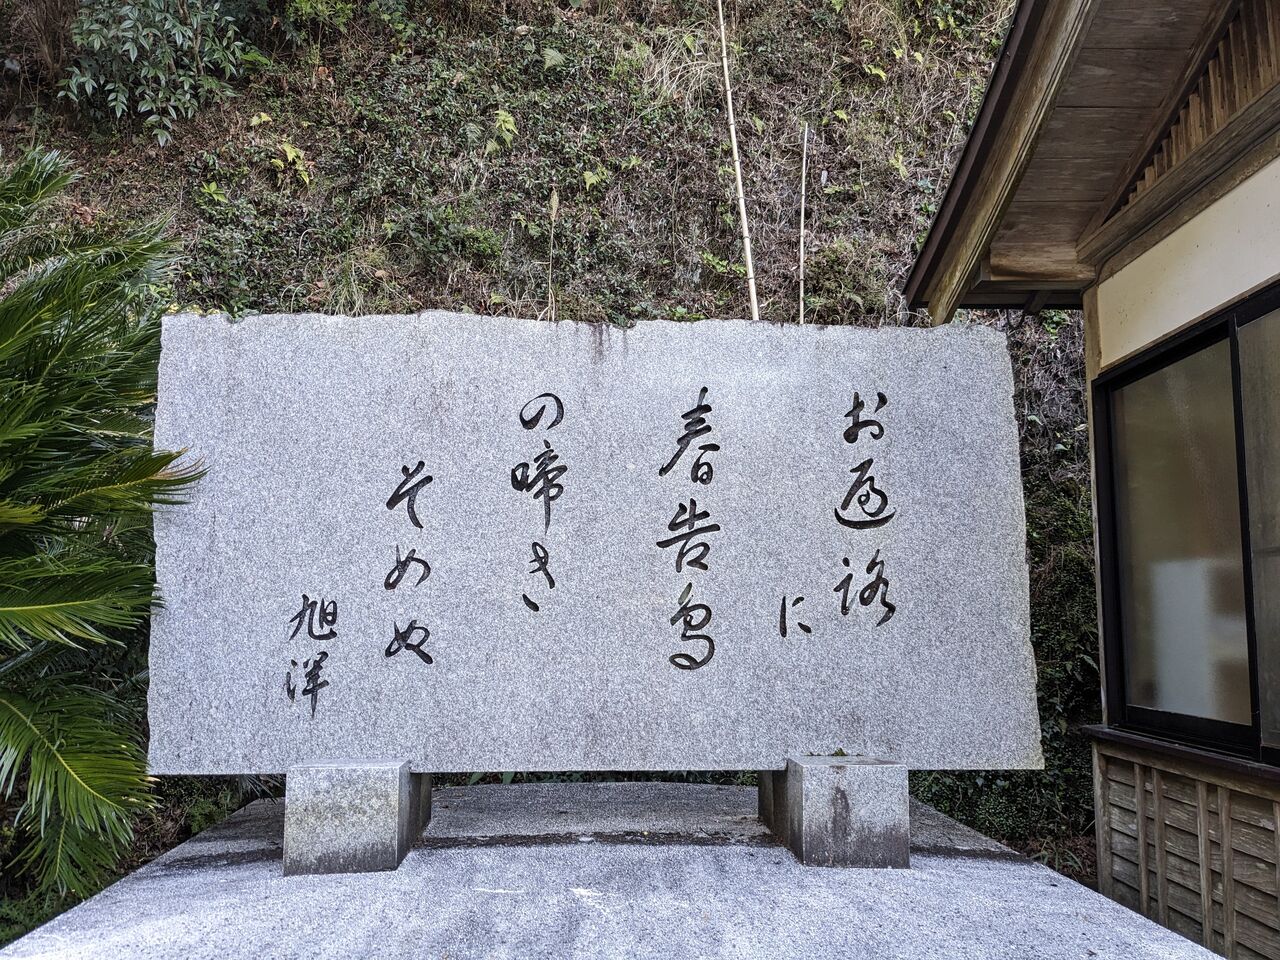 お遍路
に
春告鳥
の啼き
そめぬ
旭洋